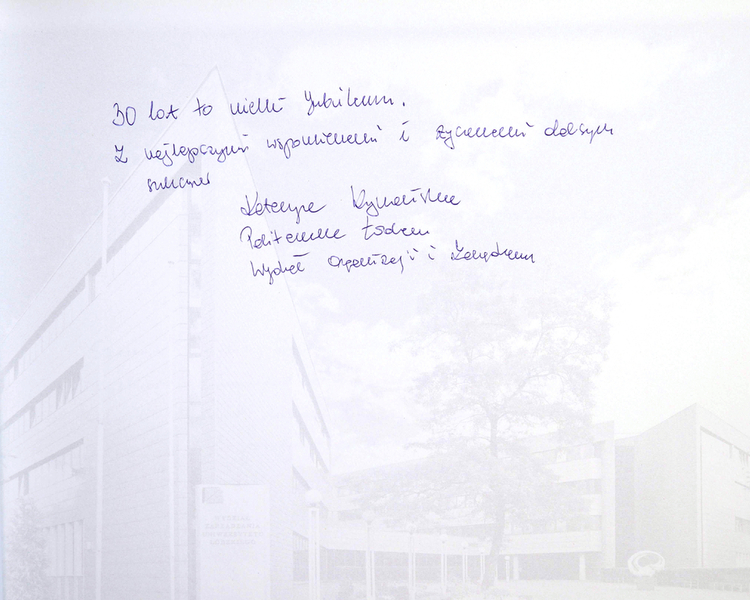 30 lat to wielki Jubileusz.
Z najlepszymi wspomnieniami i życzeniami dalszych
sukcesów
Katarzyna
Politechnika Łódzka
Wydział Organizacji i Zarządzania
WYDZIAŁ
ZARZĄDZANIA
UNIWERSYTETU
ŁÓDZKIEGO